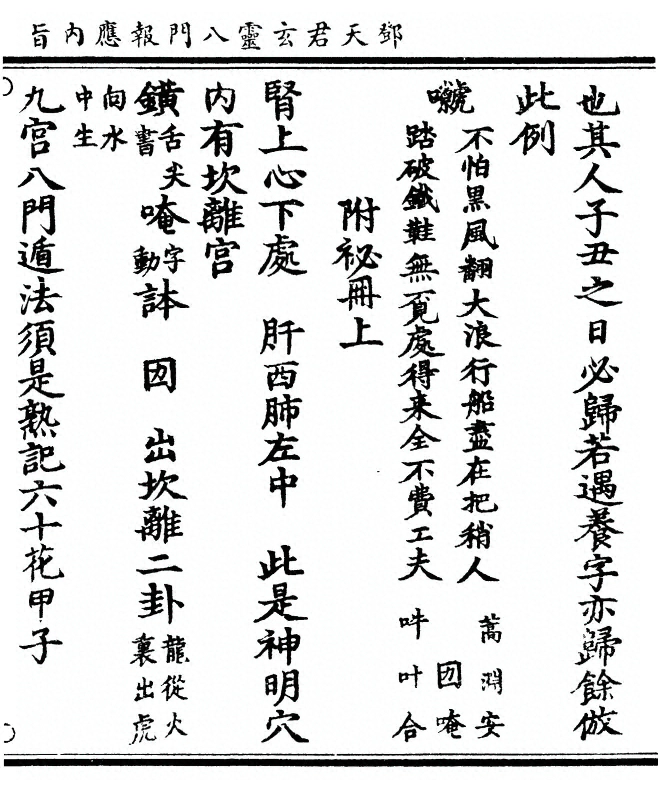 鄧天君玄靈八門報應內旨
也其人子丑之日必歸若遇養字亦歸餘倣
此例
不怕黑風翻大浪行船盡在把稍人
踏破鐵鞋無覓處得來全不費工夫
蒿淵安
囫唵
吽叶合
附祕冊上
腎上心下處 肝西肺左中 此是神明穴
內有坎離宮
鐼舌尖書唵字動訷 囫 出坎離二卦龍從火裏出虎
向水中生
九宮八門遁法須是熟記六十花甲子